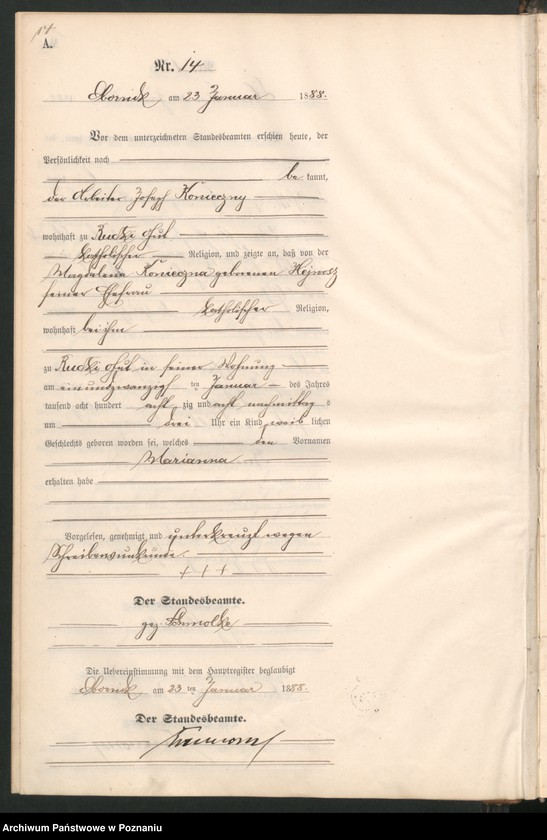 14
A.
Nr. 14
Obornick am 23 Januar 1888.
Vor dem unterzeichneten Standesbeamten erschien heute, der
Persönlichkeit nach
be kannt,
der Arbeiter Joseph Konieczny
wohnhaft zu Rudki Gut
katholischer Religion, und zeigte an, daß von der
Magdalena Konieczna geborenen
seiner Ehefrau
katholischer Religion,
wohnhaft bei ihm
zu Rudki Gut in seiner Wohnung
am einundzwanzigsten Januar des Jahres
tausend acht hundert acht zig und acht nachmittags
um drei Uhr ein Kind weib lichen
Geschlechts geboren worden sei, welches den Vornamen
Marianna
erhalten habe
Vorgelesen, genehmigt und unterkreuzt wegen
Schreibensunkunde.
+ + +
Der Standesbeamte.
gez.
Die Uebereinstimmung mit dem Hauptregister beglaubigt
Obornick am 23 ten Januar 1888.
Der Standesbeamte.
Archiwum Państwowe w Poznaniu